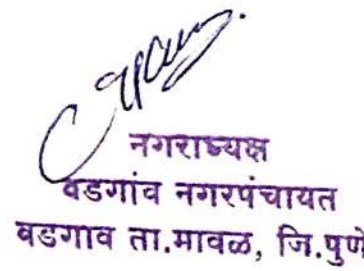 नगराध्यक्ष
वडगांव नगरपंचायत
वडगाव ता.मावळ, जि.पुणे